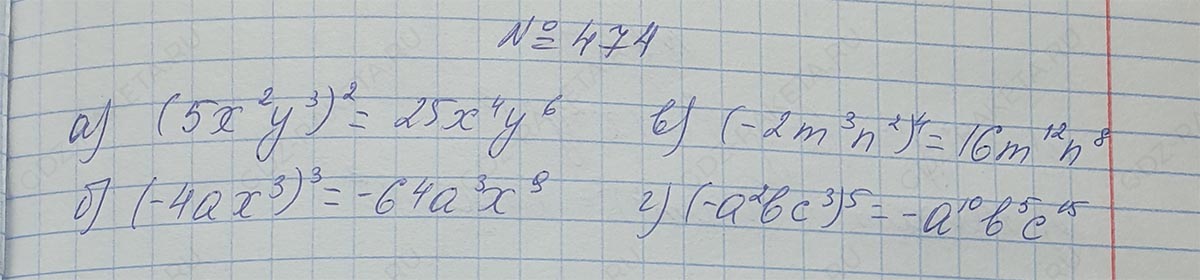 № 474
а) (5x²y³)² = 25x⁴y⁶ в) (-2m³n²)⁴ = 16m¹²n⁸
б) (-4ax³)³ = -64a³x⁹ г) (-a²bc³)⁵ = -a¹⁰b⁵c¹⁵